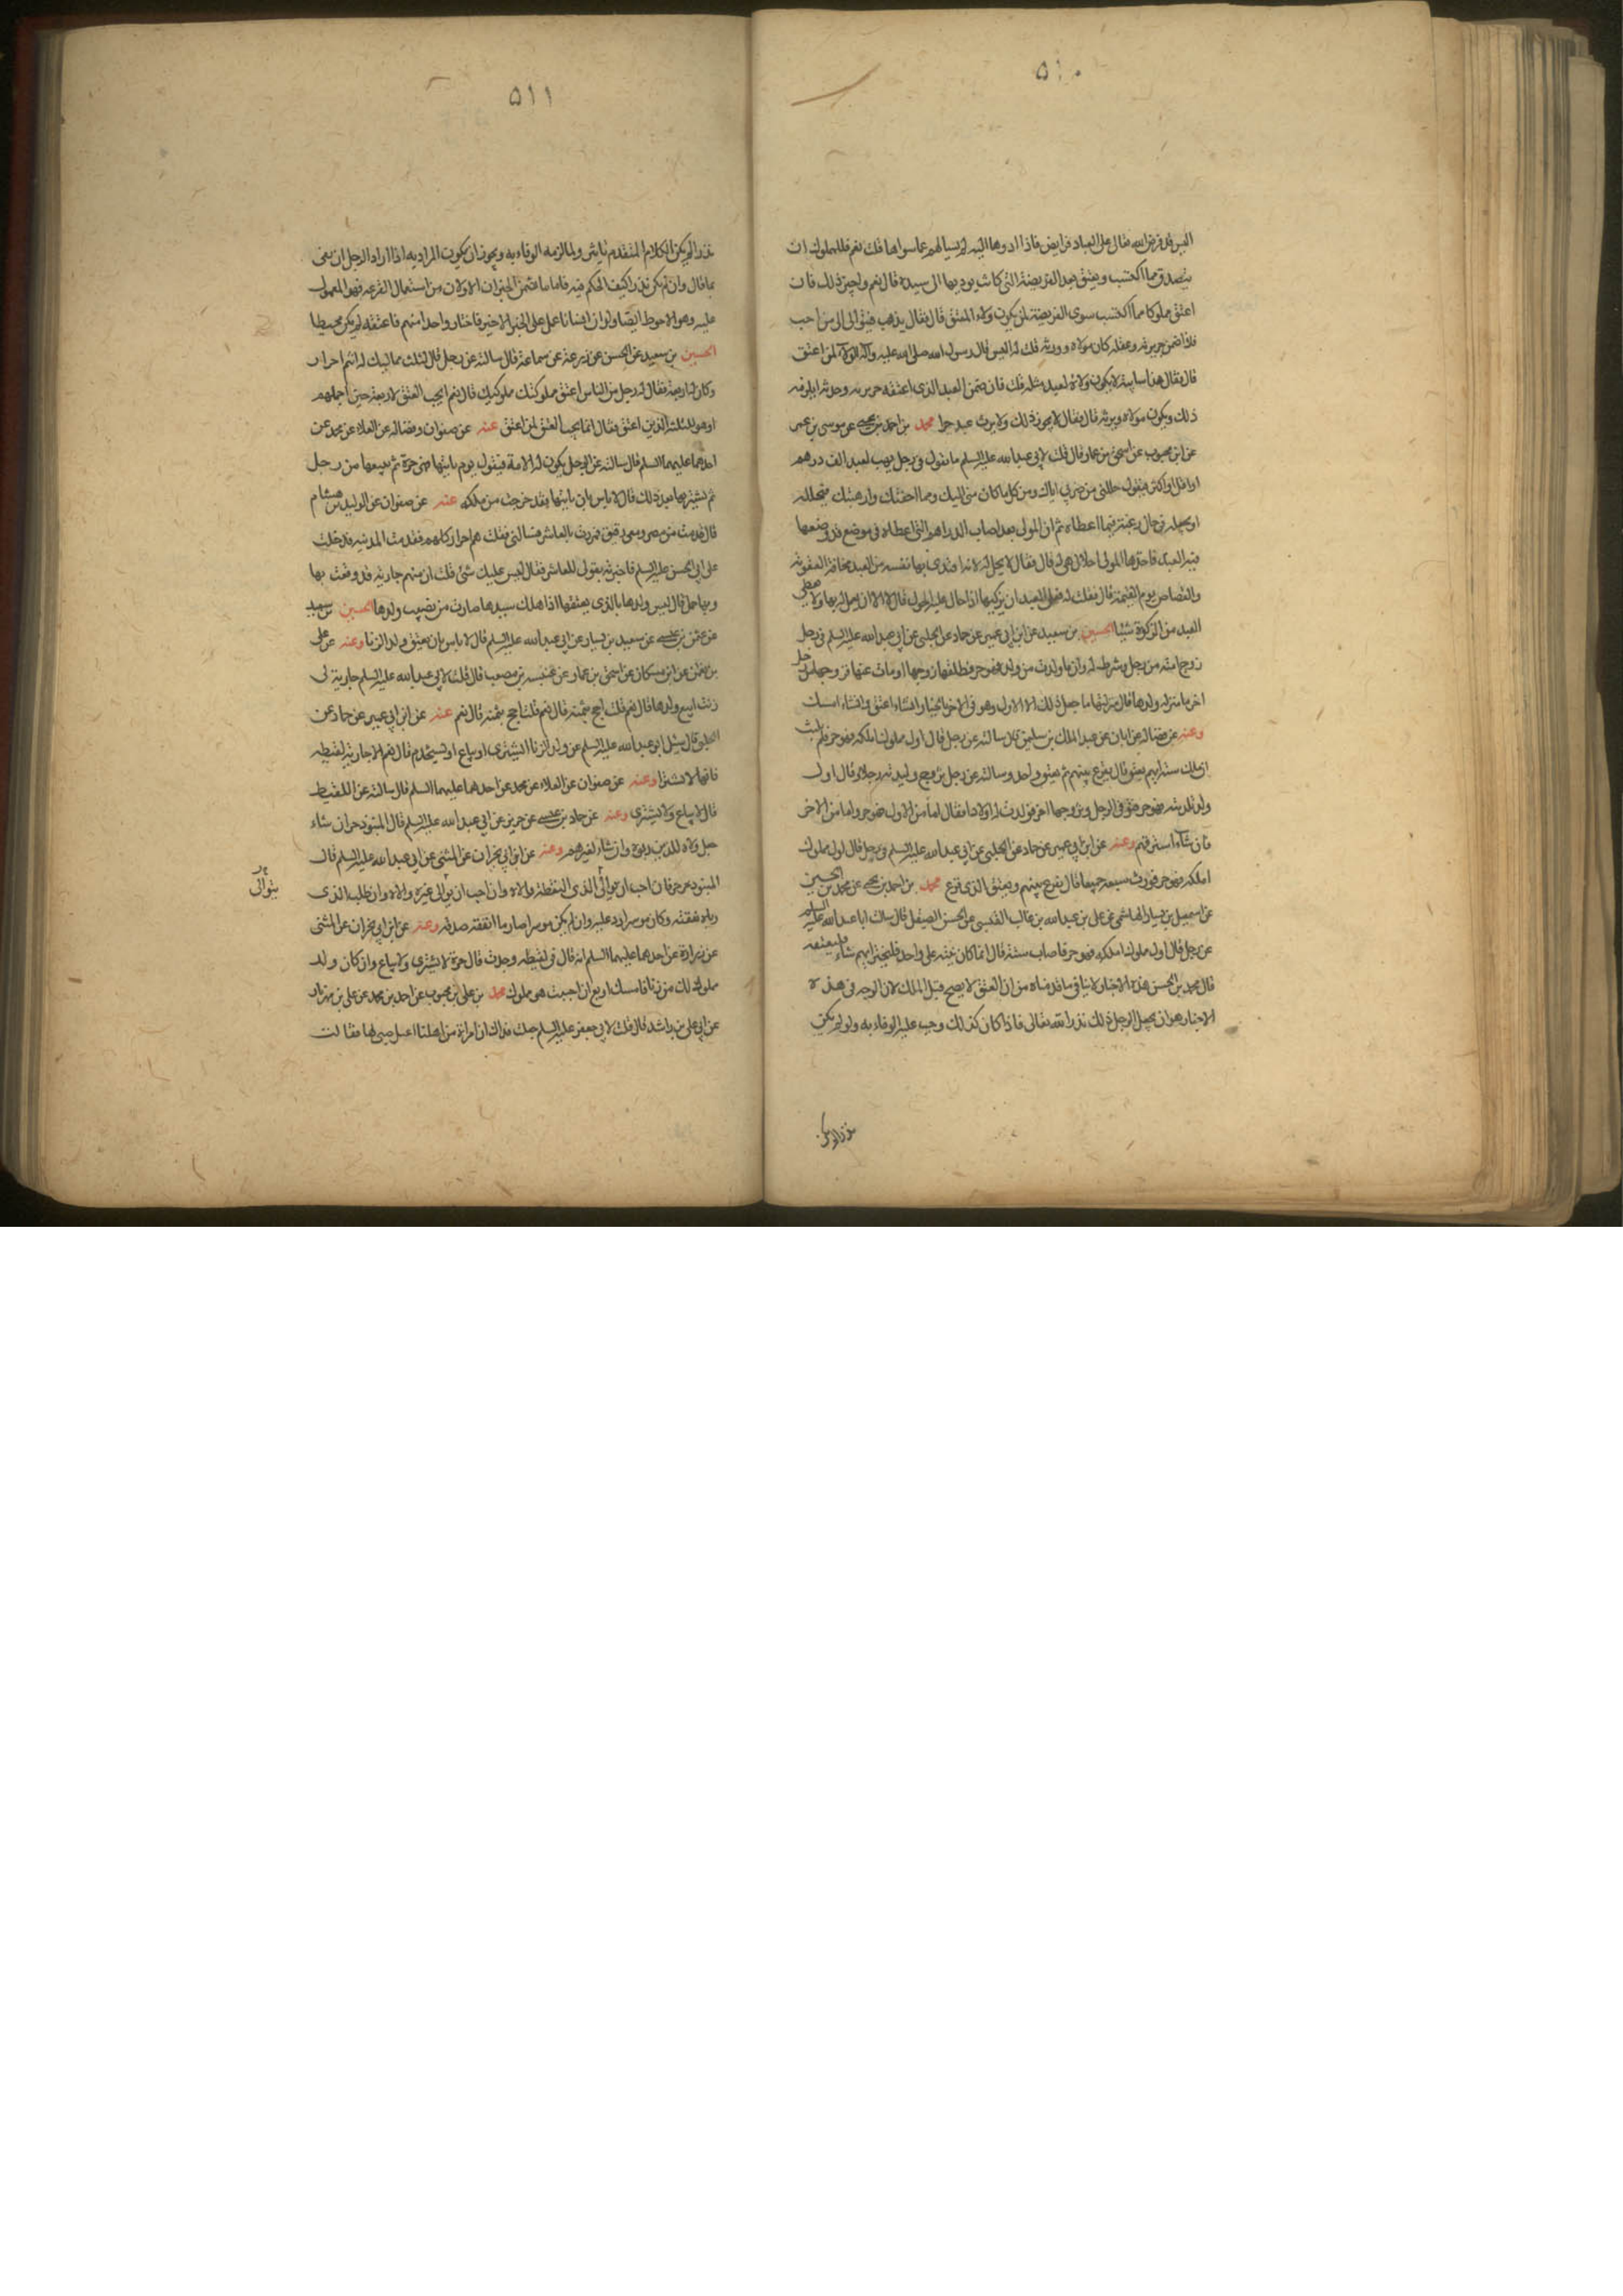 ٥١٠
اليس قد فرض الله تعالى على العباد فرايض فاذا ادوها اليه لم يسألهم عما سواها قلت نعم فللمملوك ان
يتصدق مما اكتسب ويعتق بعد الفريضة التي كانت يوديها الى سيده قال نعم واجر ذلك له قلت فان
اعتق مملوكا مما اكتسب سوى الفريضة لمن يكون ولاء المعتق قال فقال يذهب فيتوالى الى من احب
فاذا ضمن جريرته وعقله كان مولاه وورثه قلت له اليس قال رسول الله صلى الله عليه وآله الولاء لمن اعتق
قال فقال هذا سايبة لا يكون ولاؤه لعبد مثله قلت فان ضمن العبد الذي اعتقه جريرته وحدثه ايلزمه
ذلك ويكون مولاه ويرثه قال فقال لا يجوز ذلك ولا يرث عبد حرا محمد بن احمد بن يحيى عن موسى بن عمر
عن ابن محبوب عن اسحق بن عمار قال قلت لابي عبد الله عليه السلم ما تقول في رجل يهب لعبده الف درهم
او اقل او اكثر فيقول حللني من ضربي اياك ومن كل ما كان مني اليك ومما اخفتك وارهبتك فيحلله
ويجعله في حل رغبة فيما اعطاه ثم ان المولى بعد اصاب الدراهم التي اعطاه في موضع قد وضعها
فيه العبد فاخذها المولى احلال هي له قال فقال لا يحل له لانه افتدى بها نفسه من العبد مخافة العقوبة
والقصاص يوم القيمة قال فقلت له فعلى العبد ان يزكيها اذا حال عليه الحول قال لا الا ان يعمل له بها ولا يعطى
العبد من الزكوة شيئا الحسين بن سعيد عن ابن ابي عمير عن حماد عن الحلبي عن ابي عبد الله عليه السلم في رجل
زوج امته من رجل وشرط له ان ما ولدت من ولد فهو حر فطلقها زوجها او مات عنها فزوجها من رجل
اخر ما منزلة ولدها قال منزلتها ما جعل ذلك الا للاول وهو في الاخر بالخيار ان شاء اعتق وان شاء امسك
وعنه عن فضالة عن ابان عن عبد الملك بن سليمن قال سالته عن رجل قال اول مملوك املكه فهو حر فلم يلبث
ان ملك ستة ايهم يعتق قال يقرع بينهم ثم يعتق واحد وسالته عن رجل يزوج وليدته رجلا وقال اول
ولد تلدينه فهو حر فتوفي الرجل وتزوجها اخر فولدت له اولادا فقال اما من الاول فهو حر واما من الاخر
فان شاء استرقهم وعنه عن ابن ابي عمير عن حماد عن الحلبي عن ابي عبد الله عليه السلم في رجل قال اول مملوك
املكه فهو حر فورث سبعة جميعا قال يقرع بينهم ويعتق الذي قرع محمد بن احمد بن يحيى عن محمد بن الحسين
عن اسمعيل بن يسار الهاشمي عن علي بن عبد الله بن غالب القيسي عن الحسن الصيقل قال سالت ابا عبد الله عليه السلم
عن رجل قال اول مملوك املكه فهو حر فاصاب ستة قال انما كان نيته على واحد فليختر ايهم شاء فليعتقه
قال محمد بن الحسن هذه الاخبار لا ينافي ما قدمناه من ان العتق لا يصح قبل الملك لان الوجه في هذه
الاخبار هو ان يجعل الرجل ذلك نذرا لله تعالى فاذا كان كذلك وجب عليه الوفاء به ولو لم يكن
نذرا لم يكن
٥١١
نذرا لم يكن الكلام المتقدم تاثير ولما لزمه الوفاء به ويجوز ان يكون المراد به اذا اراد الرجل ان يفي
بما قال وان لم يكن نذرا كيف الحكم فيه فاما ما تضمن الخبران الاولان من استعمال القرعه فهو المعمول
عليه وهو الاحوط ايضا ولو ان انسانا عمل على الخبر الاخير فاختار واحدا منهم فاعتقه لم يكن مخطيا
الحسين بن سعيد عن الحسن عن زرعة عن سماعة قال سالته عن رجل قال لثلث مماليك له انتم احرار
وكان له اربعة فقال له رجل من الناس اعتقت مملوكيك قال نعم ايجب العتق لاربعة حين اجملهم
او هو للثلثة الذين اعتق فقال انما يجب العتق لمن اعتق عنه عن صفوان وفضالة عن العلاء عن محمد عن
احدهما عليهما السلم قال سالته عن الرجل يكون له الامة فيقول يوم ياتيها فهي حرة ثم يبيعها من رجل
ثم يشتريها بعد ذلك قال لا باس بان ياتيها فقد خرجت من ملكه عنه عن صفوان عن الوليد بن هشام
قال قدمت من مصر ومعي رقيق فمررت بالعاشر فسالني فقلت هم احرار كلهم فقدمت المدينه فدخلت
على ابي الحسن عليه السلم فاخبرته بقولي للعاشر فقال ليس عليك شئ قلت ان فيهم جارية قد وقعت بها
وبها حمل قال ليس ولدها بالذي يعتقها اذا هلك سيدها صارت من نصيب ولدها الحسين بن سعيد
عن عثمن بن عيسى عن سعيد بن يسار عن ابي عبد الله عليه السلم قال لا باس بان يعتق ولد الزنا وعنه عن علي
بن نعمن عن ابن مسكان عن اسحق بن عمار عن عنبسة بن مصعب قال قلت لابي عبد الله عليه السلم جارية لي
زنت ابيع ولدها قال نعم قلت احج بثمنه قال نعم قلت احج بثمنه قال نعم عنه عن ابن ابي عمير عن حماد عن
الحلبي قال سئل ابو عبد الله عليه السلم عن ولد الزنا اايشترى او يباع او يستخدم قال نعم الا جارية لقيطه
فانها لا تشترا وعنه عن صفوان عن العلاء عن محمد عن احدهما عليهما السلم قال سالته عن اللقيط
قال لا يباع ولا يشترى وعنه عن حماد بن عيسى عن حريز عن ابي عبد الله عليه السلم قال المنبوذ حر ان شاء
جعل ولاه للذين ربوه وان شاء لغيرهم وعنه عن ابن ابي نجران عن المثنى عن ابي عبد الله عليه السلم قال
المنبوذ حر فان احب ان يوالي الذي التقطه والاه وان احب ان يوالي غيره والاه وان طلب الذي
يتوالى
رباه نفقته وكان موسرا رد عليه وان لم يكن موسرا صار ما انفقته صدقه وعنه عن ابن ابي نجران عن المثنى
عن زرارة عن احدهما عليهما السلم انه قال في لقيطه وجدت قال حرة لا تشترى ولا تباع وان كان ولد
مملوك لك من زنا فامسك او بع ان احببت هو مملوك محمد بن علي بن محبوب عن احمد بن محمد عن علي بن مهزيار
عن ابي علي بن راشد قال قلت لابي جعفر عليه السلم جعلت فداك ان امراة من اهلنا اعتل صبي لها فقالت